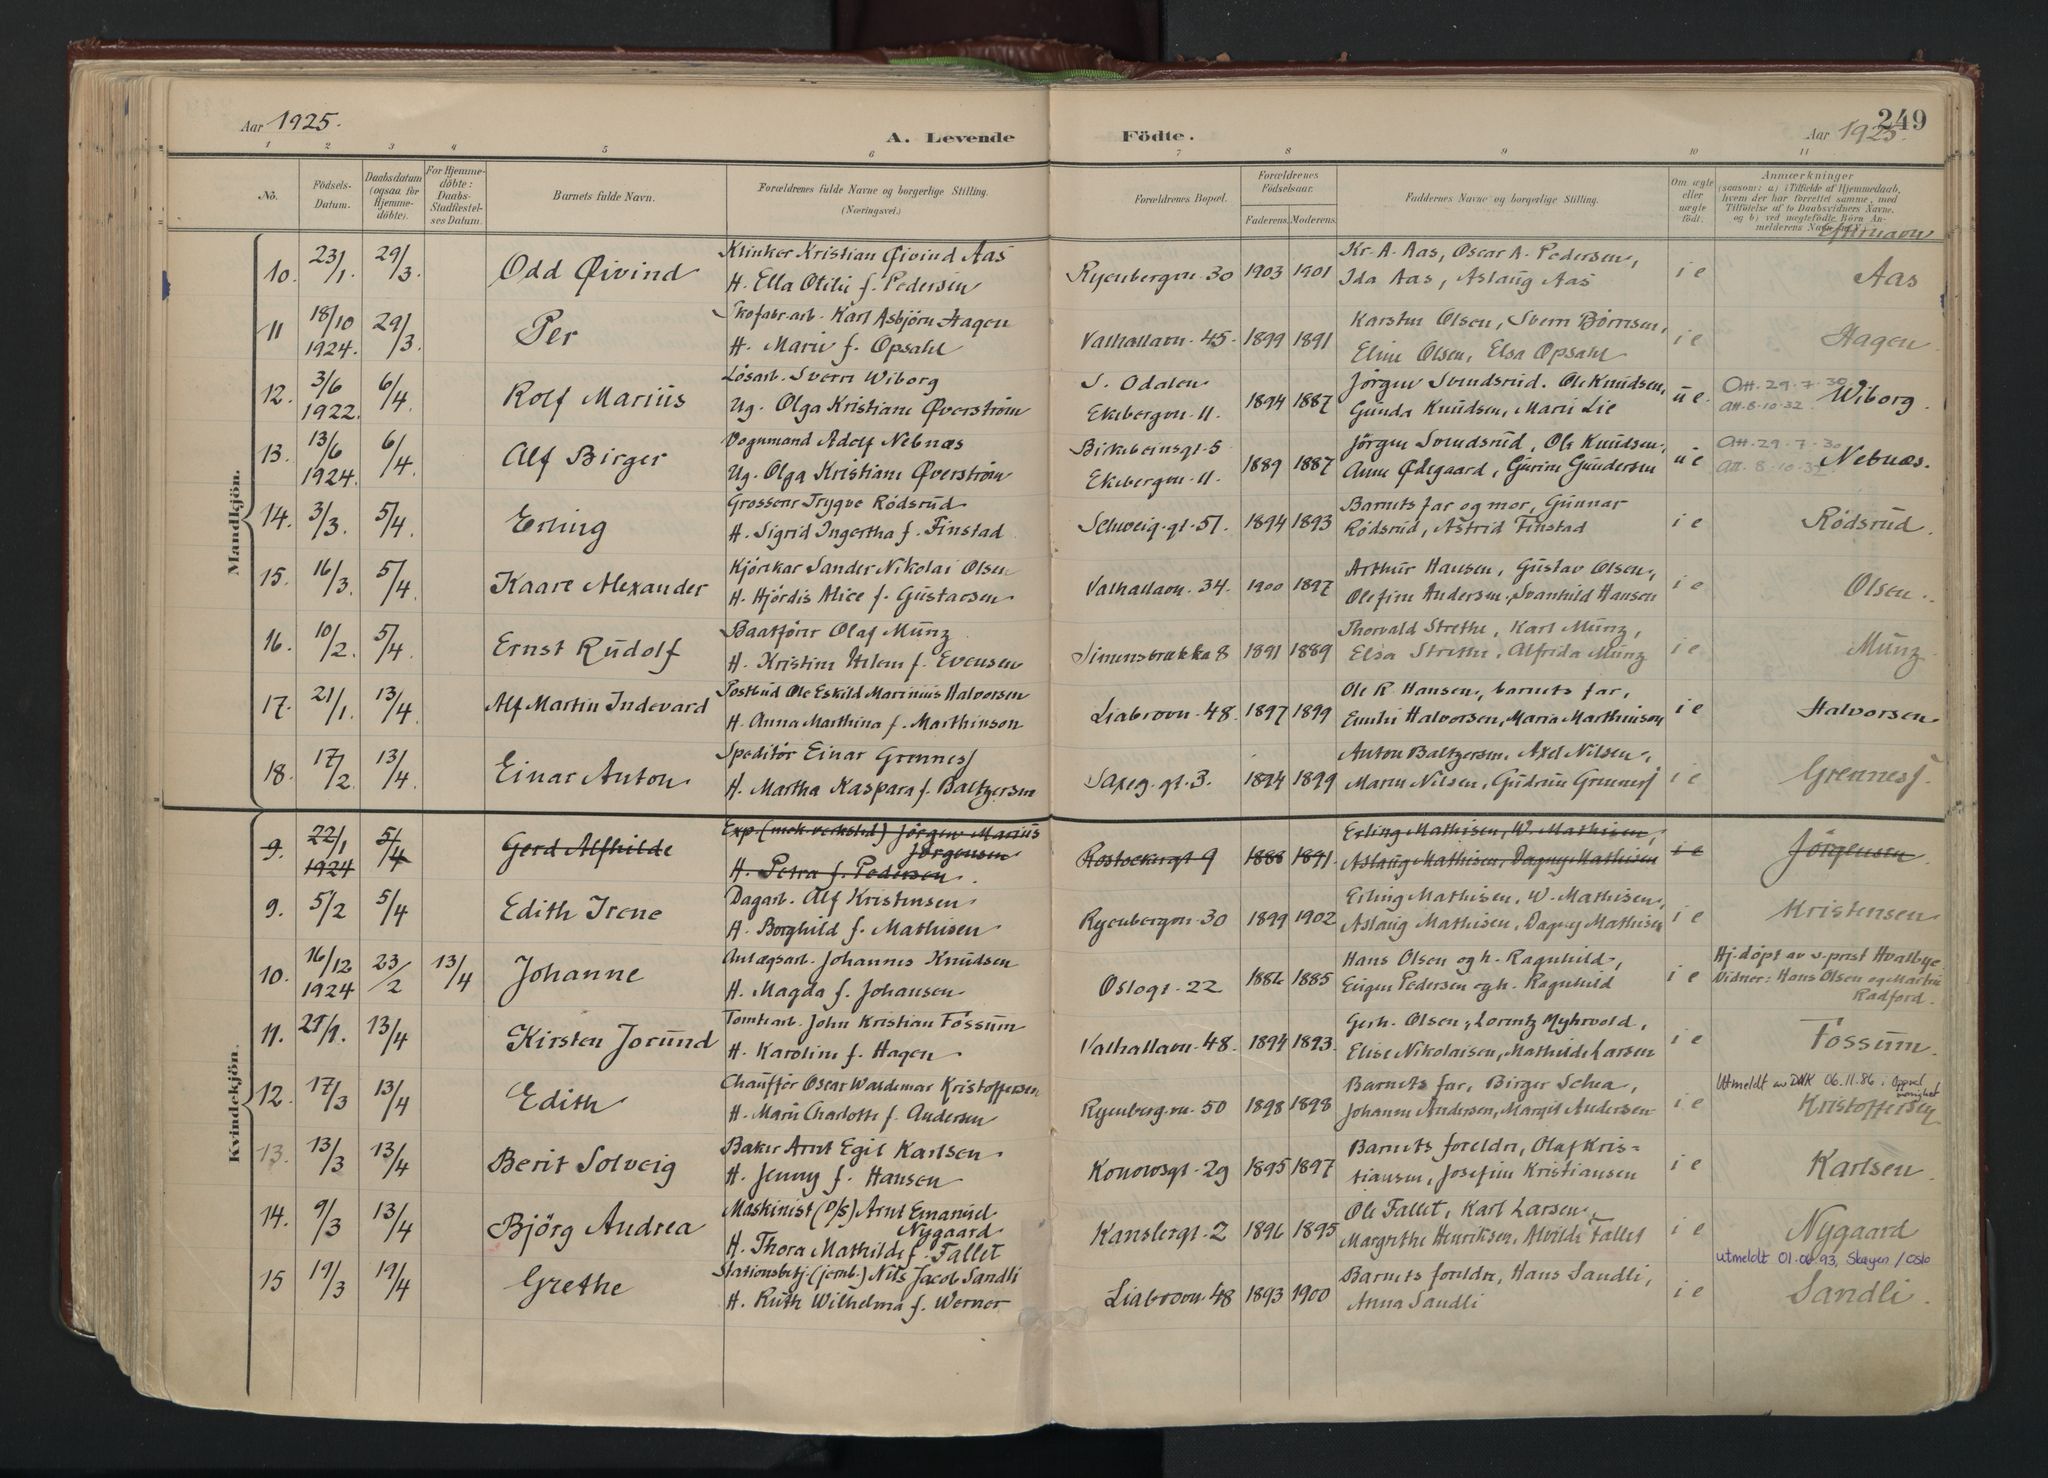 Aar 1925.
A. Levende Födte.
249
Aar 1925
1 2 3 4 5 6 7 8 9 10 11
No. Födsels-Datum. Daabsdatum (ogsaa for Hjemmedöbte). For Hjemmedöbte: Daabs-Stadfestelses Datum. Barnets fulde Navn. Forældrenes fulde Navne og borgerlige Stilling. (Næringsvei.) Forældrenes Bopæl. Forældrenes Födselsaar. Faderens. Moderens. Faddernes Navne og borgerlige Stilling. Om ægte eller uægte födt. Anmærkninger
(saasom: a) i Tilfælde af Hjemmedaab, hvem der har forrettet samme, med Tilföielse af to Daabsvidners Navne, og b) ved uegtefödte Börn Anmelderens Navn
Efternavn
Mandkjön.
10. 23/1. 29/3. Odd Øivind Klinker Kristian Øivind Aas
H. Ella Otilie f. Pedersen Ryenbergvn. 30 1903 1901 Kr. A. Aas, Oscar A. Pedersen,
Ida Aas, Aslaug Aas i e Aas
11 18/10 1924. 29/3. Per Skofabr.arb. Karl Asbjørn Hagen
H. Marie f. Opsahl Valhallavn. 45. 1899 1891 Karsten Olsen, Sverre Börresen,
Eline Olsen, Elsa Opsahl i e Hagen
12. 3/6 1922. 6/4. Rolf Marius Lösarb. Sverre Wiborg
Ug. Olga Kristiane Øverström S. Odalen
Ekebergvn. 11. 1894 1887 Jörgen Svendsrud. Ole Knudsen,
Gunda Knudsen, Marie Lie u e. Att. 29.7.30
Att. 8.10.32. Wiborg.
13. 13/6 1924. 6/4. Alf Birger Vognmand Adolf Nebnæs
Ug. Olga Kristiane Øverström Birkebeinsgt. 5
Ekebergvn. 11. 1889 1887 Jörgen Svendsrud, Ole Knudsen,
Anne Ødegaard, Gurine Gundersen u e Att. 29.7.30
Att. 8.10.32 Nebnæs.
14. 3/3. 5/4. Erling Grosserer Trygve Rödsrud
H. Sigrid Ingertha f. Finstad Schweig. gt. 51. 1894 1893 Barnets far og mor, Gunnar
Rödsrud, Astrid Finstad i e Rödsrud.
15. 16/3. 5/4. Kaare Alexander Kjörekar Sander Nikolai Olsen
H. Hjördis Alice f. Gustavsen Valhallavn. 34. 1900 1897 Arthur Hansen, Gustav Olsen,
Olefine Andersen, Svanhild Hansen i e Olsen.
16. 10/2. 5/4. Ernst Rudolf Baatförer Olaf Munz
H. Kristine Helene f. Evensen Simensbrækka 8 1891 1889 Thorvald Strethe, Karl Munz,
Elsa Strethe, Alfrida Munz i e Munz
17. 21/1. 13/4. Alf Martin Indevard Postbud Ole Eskild Marinius Halvorsen
H. Anna Marthina f. Marthinson Liabrovn. 48. 1897 1899 Ole R. Hansen, barnets far,
Emilie Halvorsen, Maria Marthinson i e Halvorsen
18. 17/2. 13/4. Einar Anton Speditör Einar Grennes
H. Martha Kaspara f. Baltzersen Saxeg. gt. 3. 1894 1899 Anton Baltzersen, Axel Nilsen,
Maren Nilsen, Gudrun Grennes i e Grennes.
Kvindekjön.
9. 22/1 1924 5/4 Gerd Alfhilde Exp. (mek. verksted) Jörgen Marius
Jörgensen
H. Petra f. Pedersen. Rostockergt 9 1888 1891 Erling Mathisen, W. Mathisen,
Aslaug Mathisen, Dagny Mathisen i e Jörgensen
9. 5/2 5/4 Edith Irene Dagarb. Alf Kristensen
H. Borghild f. Mathisen Ryenbergvn. 30 1899 1902 Erling Mathisen, W. Mathisen,
Aslaug Mathisen, Dagny Mathisen i e Kristensen
10. 16/12 1924 23/2 13/4 Johanne Anlægsarb. Johannes Knudsen
H. Magda f. Johansen Oslogt. 22 1886 1885 Hans Olsen og h. Ragnhild,
Eugen Pedersen og h. Ragnhild i e Hj. döpt av s. prest Hvalbye
Vidner: Hans Olsen og Martin
Radford.
11. 21/1. 13/4 Kirsten Jorund Tomtearb. John Kristian Fossum
H. Karoline f. Hagen Valhallavn. 48. 1894 1893. Gerh. Olsen, Lorentz Myhrvold,
Elise Nikolaisen, Mathilde Larsen i e Fossum.
12. 17/3 13/4 Edith Chaufför Oscar Waldemar Kristoffersen
H. Marie Charlotte f. Andersen Ryenberg.vn. 50 1898 1898 Barnets far, Birger Schea,
Johanne Andersen, Margit Andersen i e Utmeldt av DNK 06.11.86 i Oppsal menighet
Kristoffersen
13. 13/3 13/4 Berit Solveig Baker Arnt Egil Karlsen
H. Jenny f. Hansen Konowsgt. 29 1895 1897 Barnets foreldre, Olaf Kris-
tiansen, Josefine Kristiansen i e Karlsen
14. 9/3 13/4 Björg Andrea Maskinist (D/S) Arnt Emanuel
Nygaard
H. Thora Mathilde f. Fallet Kanslergt. 2 1896 1895 Ole Fallet, Karl Larsen,
Margrethe Henriksen, Alvilde Fallet i e Nygaard
Utmeldt 01.06.93, Skøyen / Oslo
15 19/3 19/4 Grethe Stationsbetj. (jernb.) Nils Jacob Sandli
H. Ruth Wilhelma f. Werner Liabrovn. 48 1893 1900 Barnets foreldre, Hans Sandli,
Anna Sandli i e Sandli.